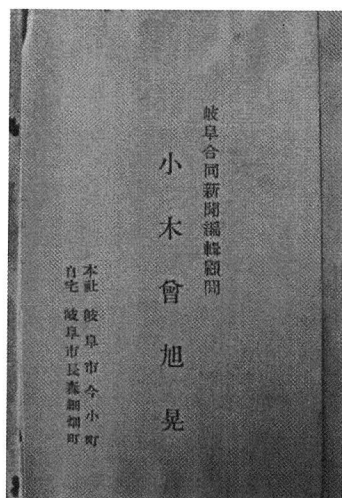 岐阜合同新聞編輯顧問
小木曾旭晃
本社 岐阜市今小町
自宅 岐阜市長森細畑町